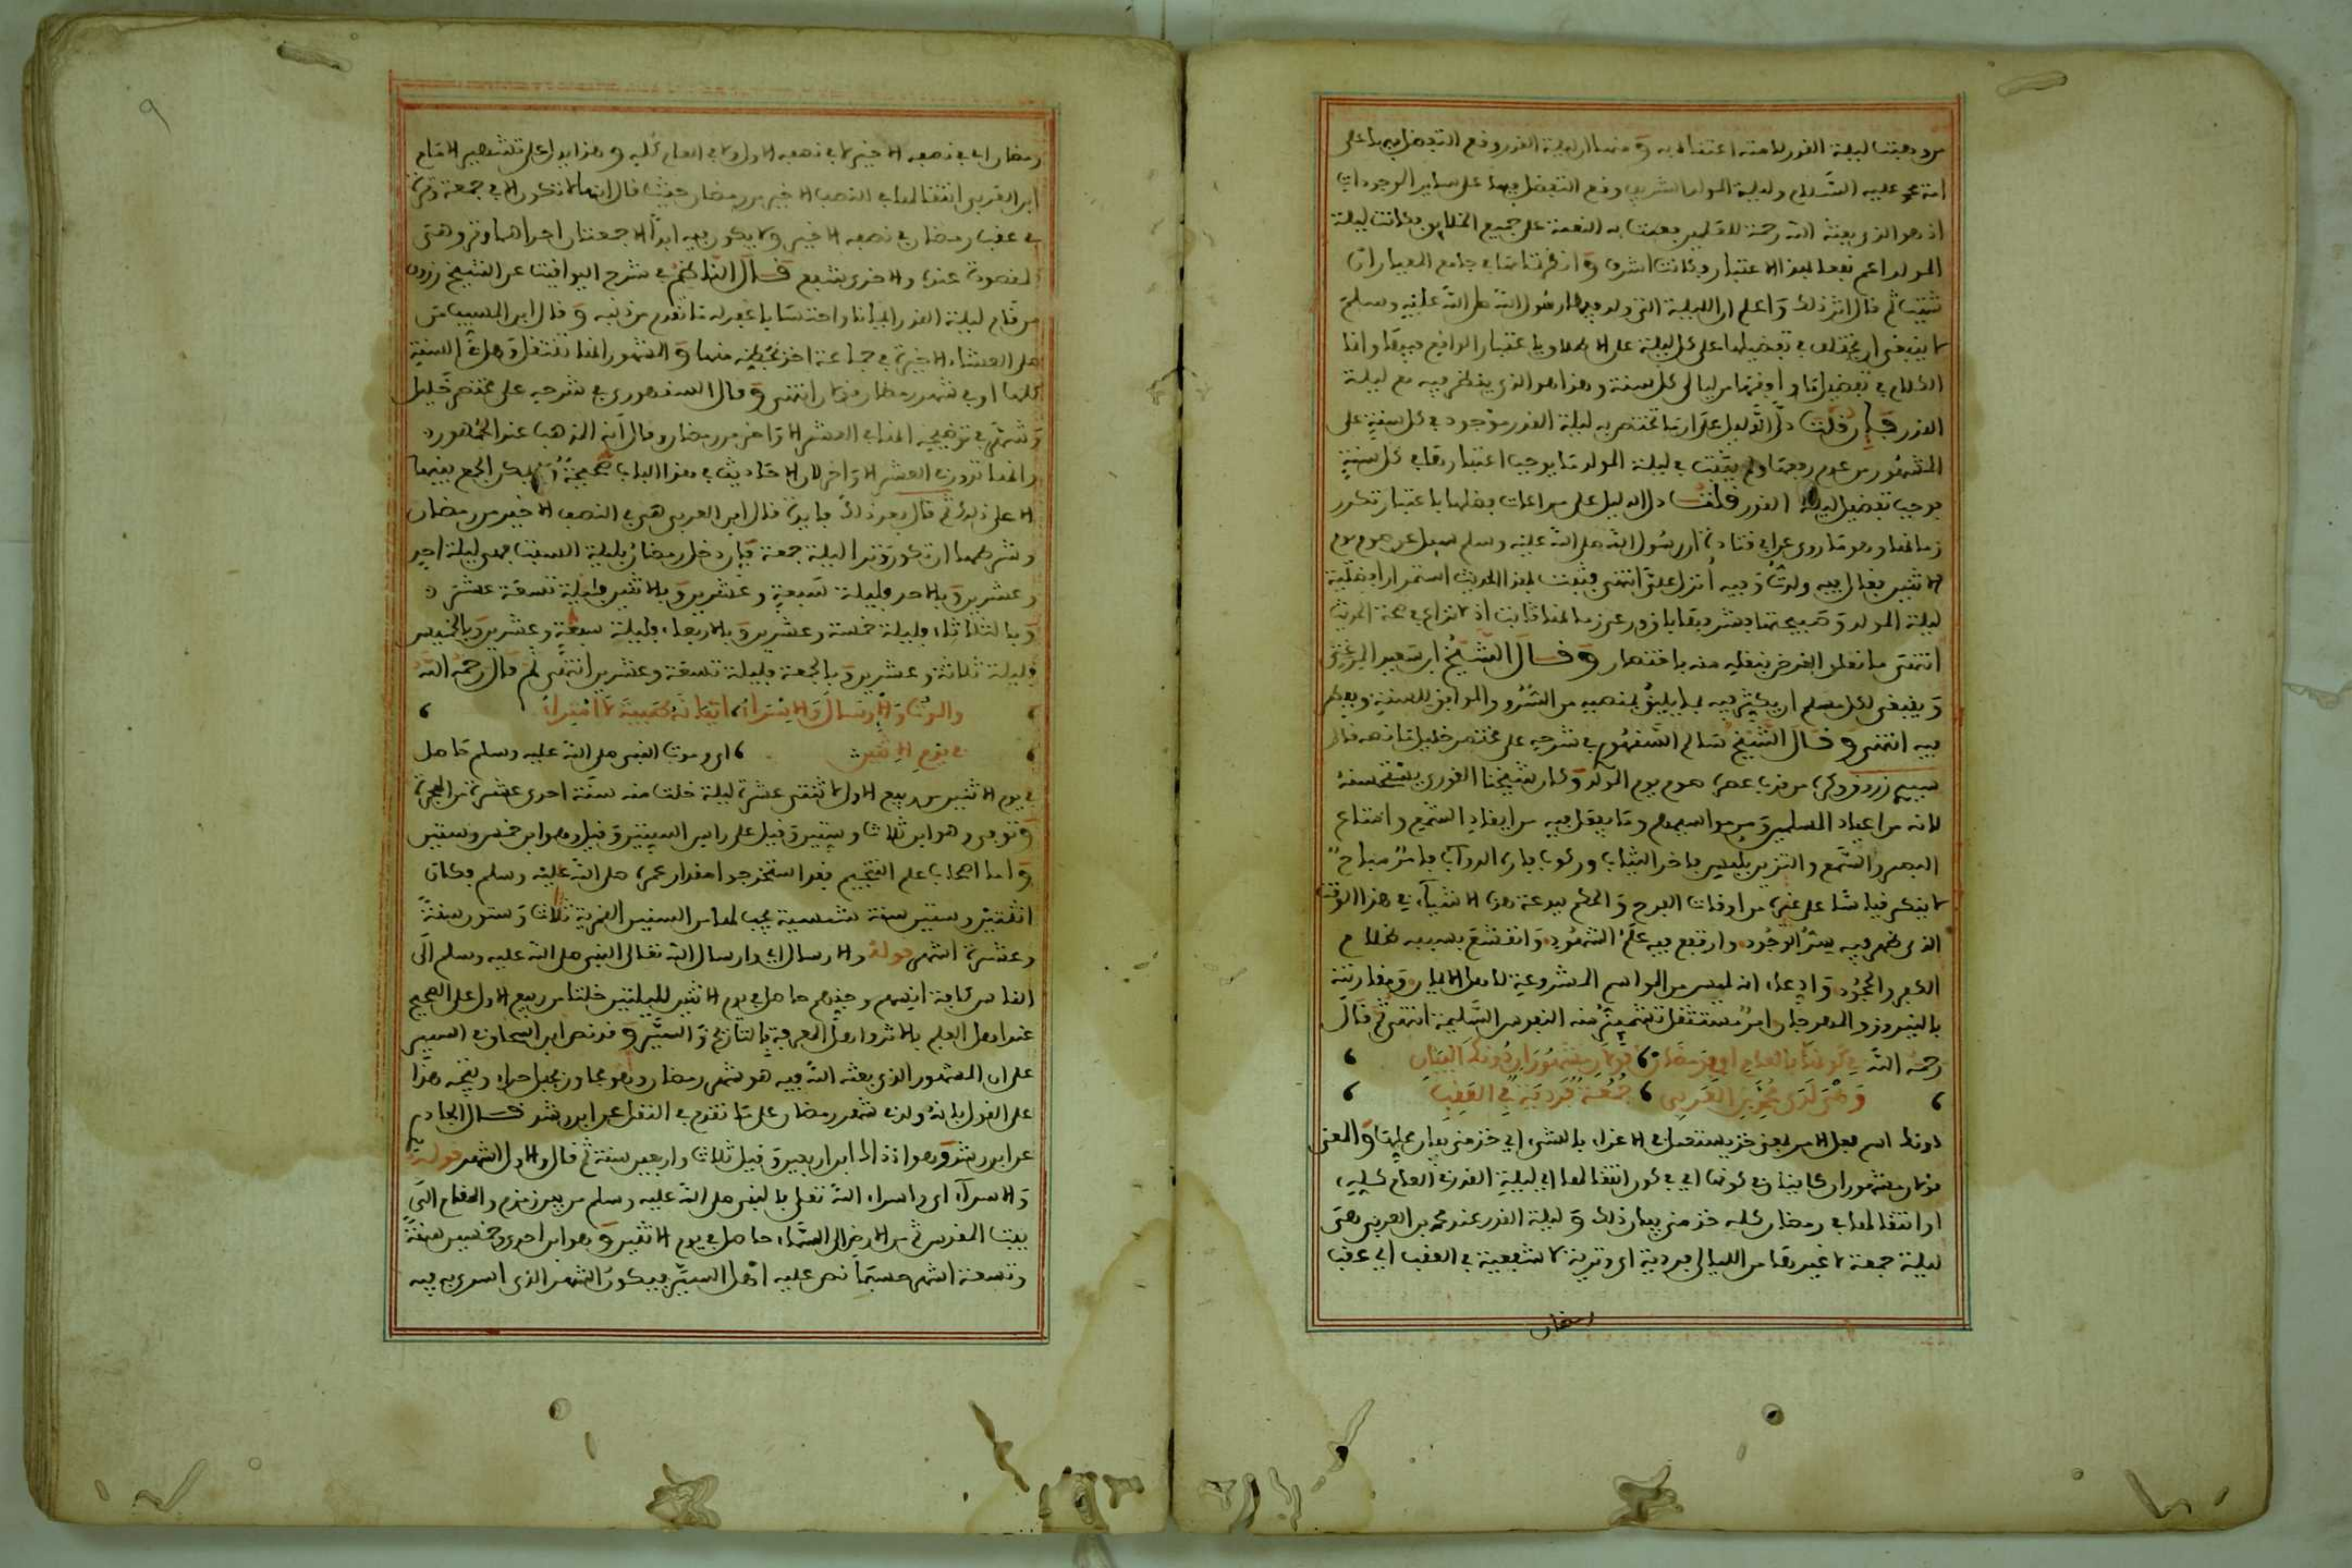 من وهبت ليلة القدر لامته اعتناء به ومنها ان ليلة القدر وقع التفضل فيها على
امة محمد عليه السلام وليلة المولد الشريف وقع التفضل فيها على سائر الموجودات
اذ هو الذي بعثه الله رحمة للعلمين فعمت به النعمة على جميع الخلايق فكانت ليلة
المولد اعم نفعا بهذا الاعتبار فكانت اشرف وانظر تمامها في جامع المعيار ان
شئت ثم قال اثر ذلك واعلم ان الليلة التي ولد فيها رسول الله صلى الله عليه وسلم
لا ينبغي ان يختلف في تفضيلها على كل ليلة على الاطلاق باعتبار الواقع فيها وانما
الكلام في تفضيلها وافقها من ليالي كل سنة وهذا هو الذي ينظر فيه مع ليلة
القدر فإن قلت دل الدليل على ان ما تختص به ليلة القدر موجود في كل سنة على
المشهور من عدم رفعها ولم يثبت في ليلة المولد ما يوجب اعتبارها في كل سنة
يوجب تفضيل ليلة القدر قلت دل الدليل على مراعات فضلها باعتبار تكرر
زمانها وهو ما روي عن ابي قتادة ان رسول الله صلى الله عليه وسلم سيل عن صوم يوم
الاثنين فقال فيه ولدت وفيه أنزل علي انتهى فثبت بهذا الحديث استمرار افضلية
ليلة المولد وصبيحتها
انتهى ما تعلق الغرض بنقله منه باختصار وقال الشيخ ابن سعيد
وينبغي لكل مسلم ان يكثر فيه بما يليق بمنصبه من السرور والموافق للسنة
فيه انتهى وقال الشيخ سالم السنهوري في شرحه على مختصر خليل ما نصه قال
سيدي زروق وكره بعض من قرب عصره صوم يوم المولد وكان شيخنا القوري يستحسنه
لانه من اعياد المسلمين ومن مواسيمهم وما يفعل فيه من ايقاد الشمع وامتاع
البصر والسمع والتزين بلبس فاخر الثياب وركوب فاره الدواب فامر مباح
لا ينكر قياسا على غيره من اوقات الفرح والحكم ببدعة هذه الاشياء في هذا الوقت
الذي ظهر فيه سر الوجود وارتفع فيه علم الشهود وانقشع بسببه ظلام
الكفر والجحود وادعاء انه ليس من المواسم المشروعة لاهل الايمان ومقارنته
بالنيروز والمهرجان امر مستثقل تشمئز منه النفوس السليمة انتهى ثم قال
رحمه الله في كونها بالعام او في رمضان ، قولان مشهوران دونك البيان ،
، وهي لدى محمد بن العربي ، جمعة فردية في العقب ،
دونك اسم فعل الامر بمعنى خذ يستعمل في الاغراء بالشيء اي خذ مني والمعنى
قولان مشهوران كاينان في كونها اي في كون انتقالها اي ليلة القدر في العام كله
او انتقالها في رمضان كله خذ مني بيان ذلك وليلة القدر عند محمد بن العربي هي
ليلة جمعة لا غيرها من الليالي فردية اي وترية لا شفعية في العقب اي عقب
رمضان
٩
رمضان اي في نصفه الاخير لا في نصفه الاول ولا في العام كله وهذا يدل على تشهير الامام
ابن العربي انتقالها في النصف الاخير من رمضان حيث قال انها لا تكون الا في جمعة وترية
في عقب رمضان في نصفه الاخير ولا يكون فيه ابدا الا جمعتان احداهما وتر وهي
المقصودة عنده والاخرى شفع قال الناظم في شرح اليواقيت عن الشيخ زروق
من قام ليلة القدر ايمانا واحتسابا غفر له ما تقدم من ذنبه وقال ابن المسيب من
صلى العشاء الاخيرة في جماعة اخذ بحظه منها والمشهور انها تنتقل وهل في السنة
كلها او في شهر رمضان انتهى وقال السنهوري في شرحه على مختصر خليل
وشهر في توضيحه انها في العشر الاواخر من رمضان وقال انه المذهب عند الجمهور
وانها تدور في العشر الاواخر لان الاحاديث في هذا الباب صحيحة ولا يمكن الجمع بينها
الا على ذلك ثم قال بعد ذلك فايدة قال ابن العربي هي في النصف الاخير من رمضان
وشرطها ان تكون وترا ليلة جمعة فإن دخل رمضان بليلة السبت فهي ليلة احد
وعشرين وبالاحد فليلة سبعة وعشرين وبالاثنين فليلة تسعة عشر
وبالثلاثاء فليلة خمسة وعشرين وبالاربعاء فليلة سبعة وعشرين وبالخميس
فليلة ثلاثة وعشرين وبالجمعة فليلة تسعة وعشرين انتهى ثم قال رحمه الله
، والموت والارسال والاسراء ، لا امتراء ،
، في يوم الاثنين ، اي وموت النبي صلى الله عليه وسلم حاصل
في يوم الاثنين من ربيع الاول لاثنتي عشرة ليلة خلت منه سنة احدى عشرة من الهجرة
وتوفي وهو ابن ثلاث وستين وقيل على راس الستين وقيل وهو ابن خمس وستين
واما اصحاب علم التنجيم فقد استخرجوا مقدار عمره صلى الله عليه وسلم فكان
اثنتين وستين سنة شمسية يجب لها من السنين القمرية ثلاث وستون سنة
وعشرة اشهر قوله والارسال اي وارسال الله تعالى النبي صلى الله عليه وسلم الى
الناس كافة انسهم وجنهم حاصل في يوم الاثنين لليلتين خلتا من ربيع الاول على الصحيح
عند اهل العلم بالاثر واهل المعرفة بالتاريخ والسير وقد نص ابن اسحاق في السير
على ان الشهر الذي بعثه الله فيه هو شهر رمضان وهو مجاور بجبل حراء ويتجه هذا
على القول بانه ولد في شهر رمضان على ما تقدم في النقل عن ابن رشد قال الجادم
عن ابن رشد وهو اذ ذاك ابن اربعين وقيل ثلاث واربعين سنة ثم قال والاول اشهر قوله
والاسراء اي واسراء الله تعلى بالنبي صلى الله عليه وسلم من بير زمزم والمقام الى
بيت المقدس ثم من الارض الى السماء حاصل في يوم الاثنين وهو ابن احدى وخمسين سنة
وتسعة اشهر حسبما نص عليه اهل السير فيكون الشهر الذي اسري به فيه